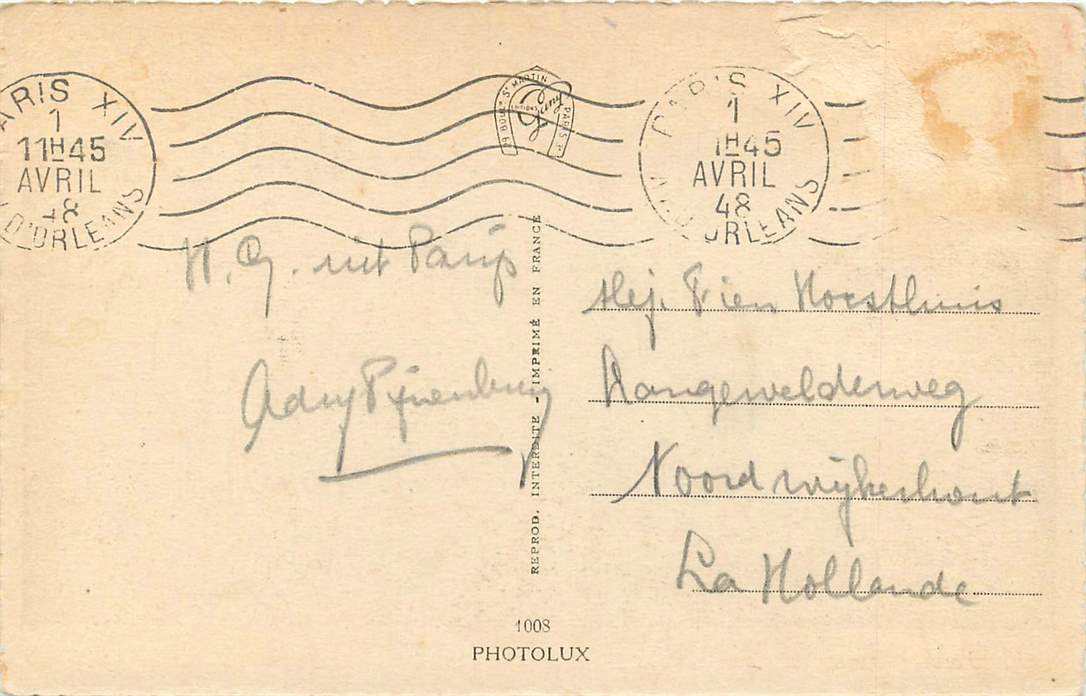 PARIS XIV
1
11H45
AVRIL
48
D'ORLEANS
39 BOULD ST MARTIN PARIS
EDITIONS
Guy
PARIS XIV
1
1H45
AVRIL
48
AV. D'ORLEANS
H. G. uit Parijs
Adry Pijnenburg
REPROD. INTERDITE - IMPRIMÉ EN FRANCE
Mej. Fien Horsthuis
Langevelderweg
Noordwijkerhout
La Hollande
1008
PHOTOLUX